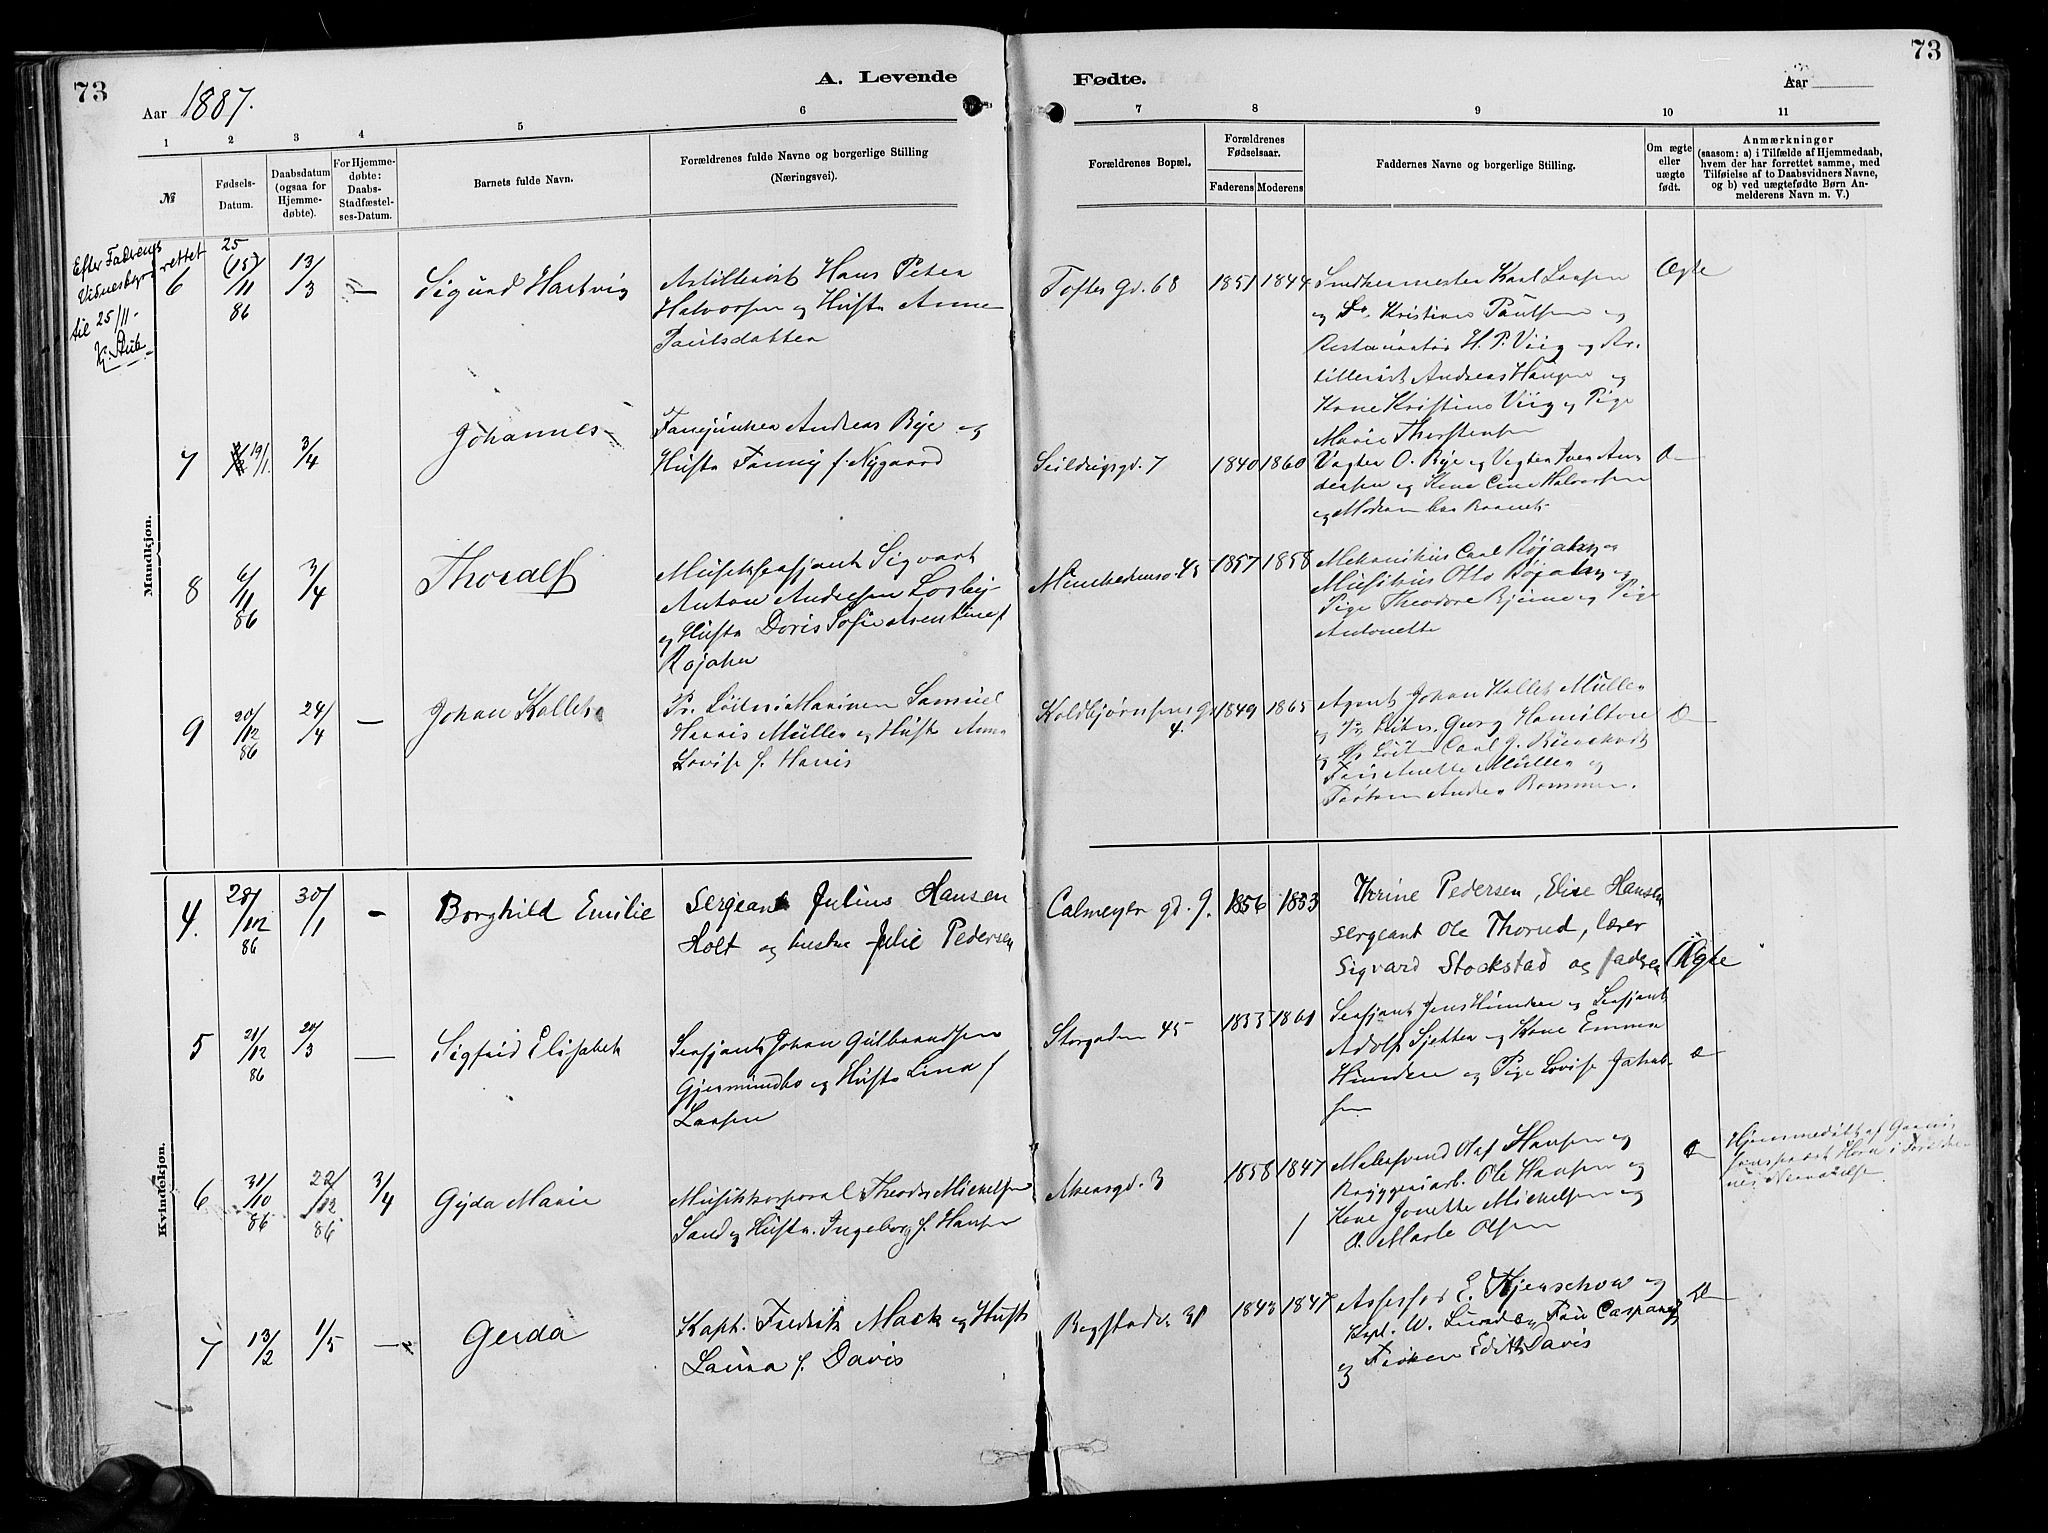 73
73
A. Levende
Fødte.
Aar 1887.
Aar
1 2 3 4 5 6 7 8 9 10 11
№
Fødsels-
Datum.
Daabsdatum
(ogsaa for
Hjemme-
døbte).
For Hjemme-
døbte:
Daabs-
Stadfæstel-
ses-Datum.
Barnets fulde Navn.
Forældrenes fulde Navne og borgerlige Stilling
(Næringsvei).
Forældrenes Bopæl.
Forældrenes
Fødselsaar.
Faderens Moderens
Faddernes Navne og borgerlige Stilling.
Om ægte
eller
uægte
født.
Anmærkninger
(saasom: a) i Tilfælde af Hjemmedaab,
hvem der har forrettet samme, med
Tilføielse af to Daabsvidners Navne,
og b) ved uægtefødte Børn An-
melderens Navn m. V.)
Mandkjøn.
Efter Faderens
rettet
til 25/11-
6
25
(15)/11
86
13/3
—
Sigurd Hartvig
Artillerist Hans Peter
Halvorsen og Hustr Anne
Paulsdatter
Toftes gd. 68
1851
1844
Snedkermester Karl Larsen
og Do. Kristian Paulsen og
Restauratør H. P. Viig og Ar-
tillerist Andreas Hansen og
Kone Kristine Viig og Pige
Marie Thorstensen
Ægte
7
19/1.
3/4
Johannes
Fanejunker Andreas Bye og
Hustr Fanny f. Nygaard
Seildugsgd. 7
1840
1860
Vagter O. Bye og Vagter Iver An-
dersen og Kone Line Halvorsen
og Moderen bar Barnet
8
6/11
86
3/4
Thoralf
Musiksersjant Sigvart
Anton Andersen Losby
og Hustr Doris Sofie f
Røjahn
45
1857
1858
Mekanikus Carl Røjahn og
Musikus Otto Røjahn og
Pige Theodore og Pige
Antonette
9
20/12
86
24/4
—
Johan Koller
Pr. Løitn i Marinen Samuel
Harris Müller og Hustr Anna
Lovise f. Harris
Koldbjørnsens gd
4.
1849
1865
Agent Johan Koller Müller
og Georg Hamilton
og Pr. Løitn Carl G.
Anette Müller og
Frøken Andrea
Kvindekjøn.
4.
28/12
86
30/1
-
Borghild Emilie
Sergeant Julius Hansen
Holt og hustru Julie Pedersen
Calmeyer gd. 9.
1856
1853
Thrine Pedersen, Elise Hansen
sergeant Ole Thorud, lærer
Sigvard Stockstad og faderen
Ægte
5
21/12
86
20/3
—
Sigfrid Elisabet
Sersjant Johan Gulbrandsen
Gjermundbo og Hustr Lina f
Larsen
Storgaden 45
1853
1861
Sersjant Jens Hundere og Sersjant
Adolf Sjetten og Kone Emma
Hundere og Pige Lovise Jakob-
sen
6
31/10
86
22/12
86
3/4
Gyda Marie
Musikkorporal Theodor Mickelsen
Sand og Hustr. Ingeborg f. Hansen
Akersgd. 3
1858
1847
Malersvend Olaf Hansen og
Bryggeriarb. Ole Hansen og
Kone Jonette Mickelsen og
Marte Olsen
Hjemmedøbt af
7
13/2
1/5
—
Gerda
Kapt. Fredrik Mack og Hustr
Laura f. Davis
Bogstadv. 31
1843
1847
Assessor E. Hjenschow og
Kapt. W. Lund og Fru Caspary
og Frøken Edith Davis